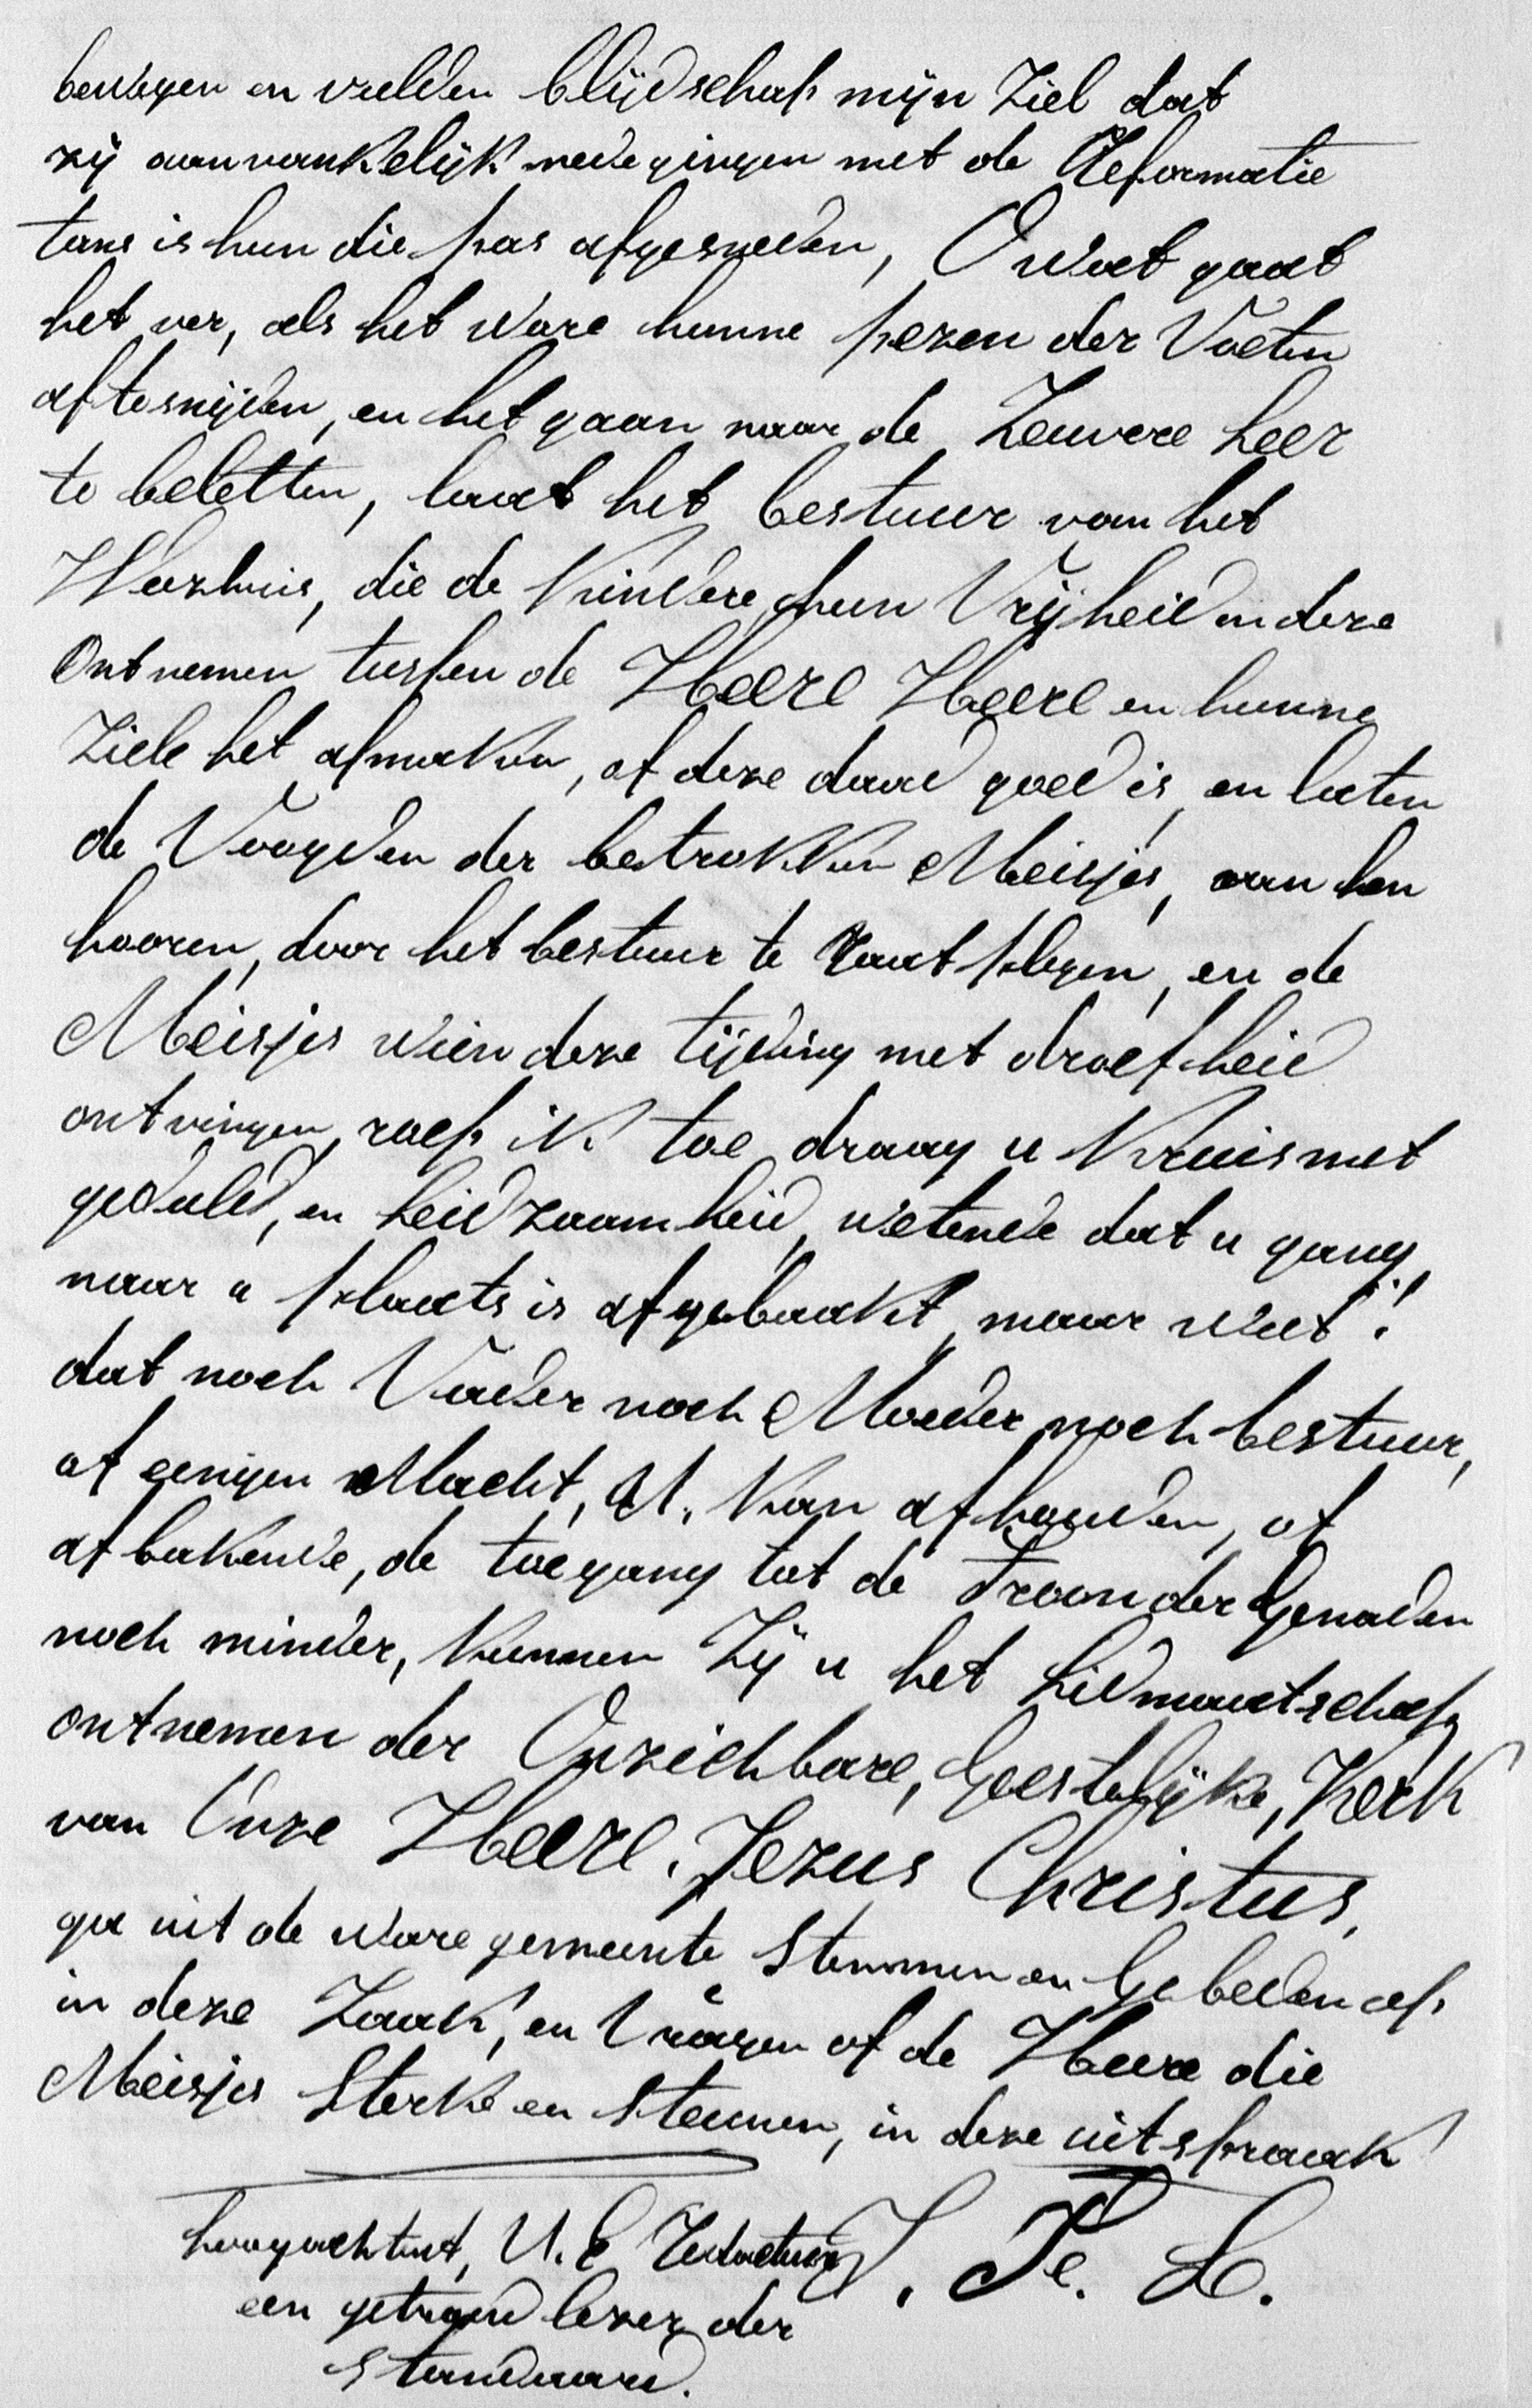 bewegen en vulden blijdschap mijn Ziel dat
zij aanvankelijk mede gingen met de Reformatie
tans is hun die pas afgesneden, O wat gaat
het ver, als het ware hunne pezen der Voeten
af te snijden, en het gaan naar de Zuivere Leer
te beletten, laat het bestuur van het
Weezhuis, die de Kindere, hun Vrijheid in deze
Ontnemen tussen de Heere Heere en hunne
Ziele het afmaken, of deze daad goed is, en laten
de Voogden der betrokken Meisjes, aan hen
hooren, door het bestuur te Raat plegen, en de
Meisjes wien deze tijding met droefheid
ontvingen, roep ik toe draag u Kruis met
geduld, en leidzaamheid, wetende dat u gang,
naar u plaats is afgebaakt, maar weet!
dat noch Vader noch Moeder, noch bestuur,
of eenigen Macht, U. kan afhouden, of
afbakende, de toegang tot de Troon der Genaden
noch minder, kunnen Zij u het Lidmaatschap
ontnemen der Onzichbare, Geestelijke, Kerk
van Onze Heere. Jezus Christus,
ga uit de ware gemeente Stemmen en Gebeden op
in deze Zaak, en Vragen of de Heere die
Meisjes Sterke en Steunen, in deze uitspraak
hoogachtent, U. E. Redacteur J. Te. L.
een getrouw lezer der
Standaard.